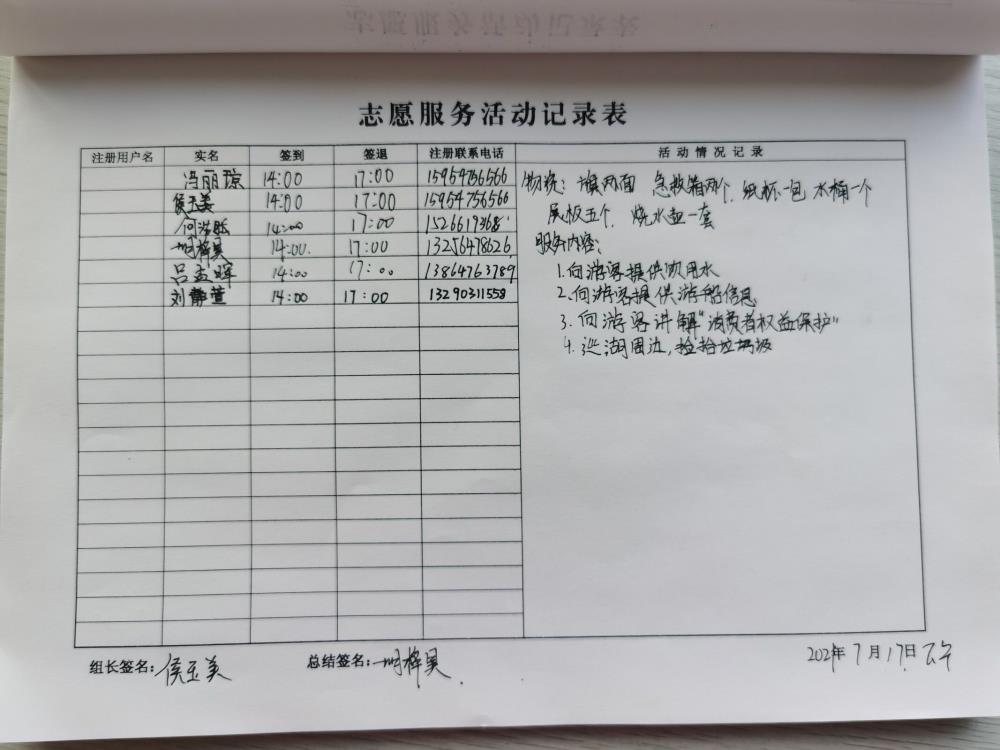 志愿服务活动记录表
注册用户名 实名 签到 签退 注册联系电话 活动情况记录
冯丽琼 14:00 17:00 15954756566
侯玉美 14:00 17:00 15954756566
何浩 14:00 17:00
14:00. 17:00 13256478626
吕孟晖 14:00 17:00 13864763789
刘静萱 14:00 17:00 13290311558
物资: 旗两面 急救箱两个, 纸杯一包 水桶一个
展板五个, 烧水壶一套
服务内容:
1.向游客提供饮用水
2.向游客提供游船信息
3.向游客讲解"消费者权益保护"
4.巡湖周边,捡拾垃圾
组长签名: 侯玉美 总结签名: 7月17日下午